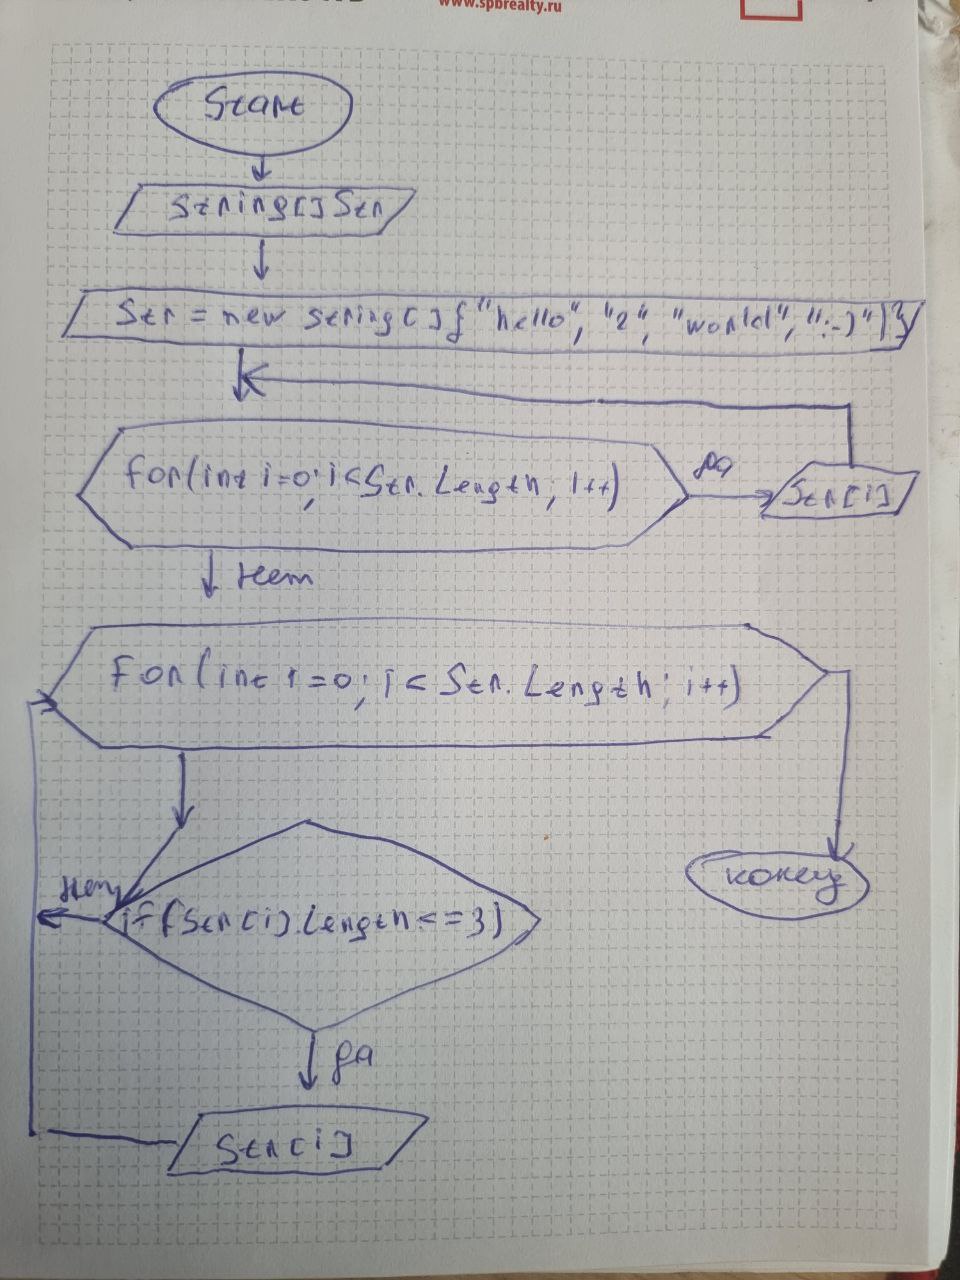 www.spbrealty.ru
Start
String[] Str
Str = new string[]{"hello", "2", "world", ":-)"}
for(int i=0; i<Str.Length; i++)
да
Str[i]
нет
For(int i=0; i< Str.Length; i++)
нет
конец
if(Str[i].Length<=3)
да
Str[i]